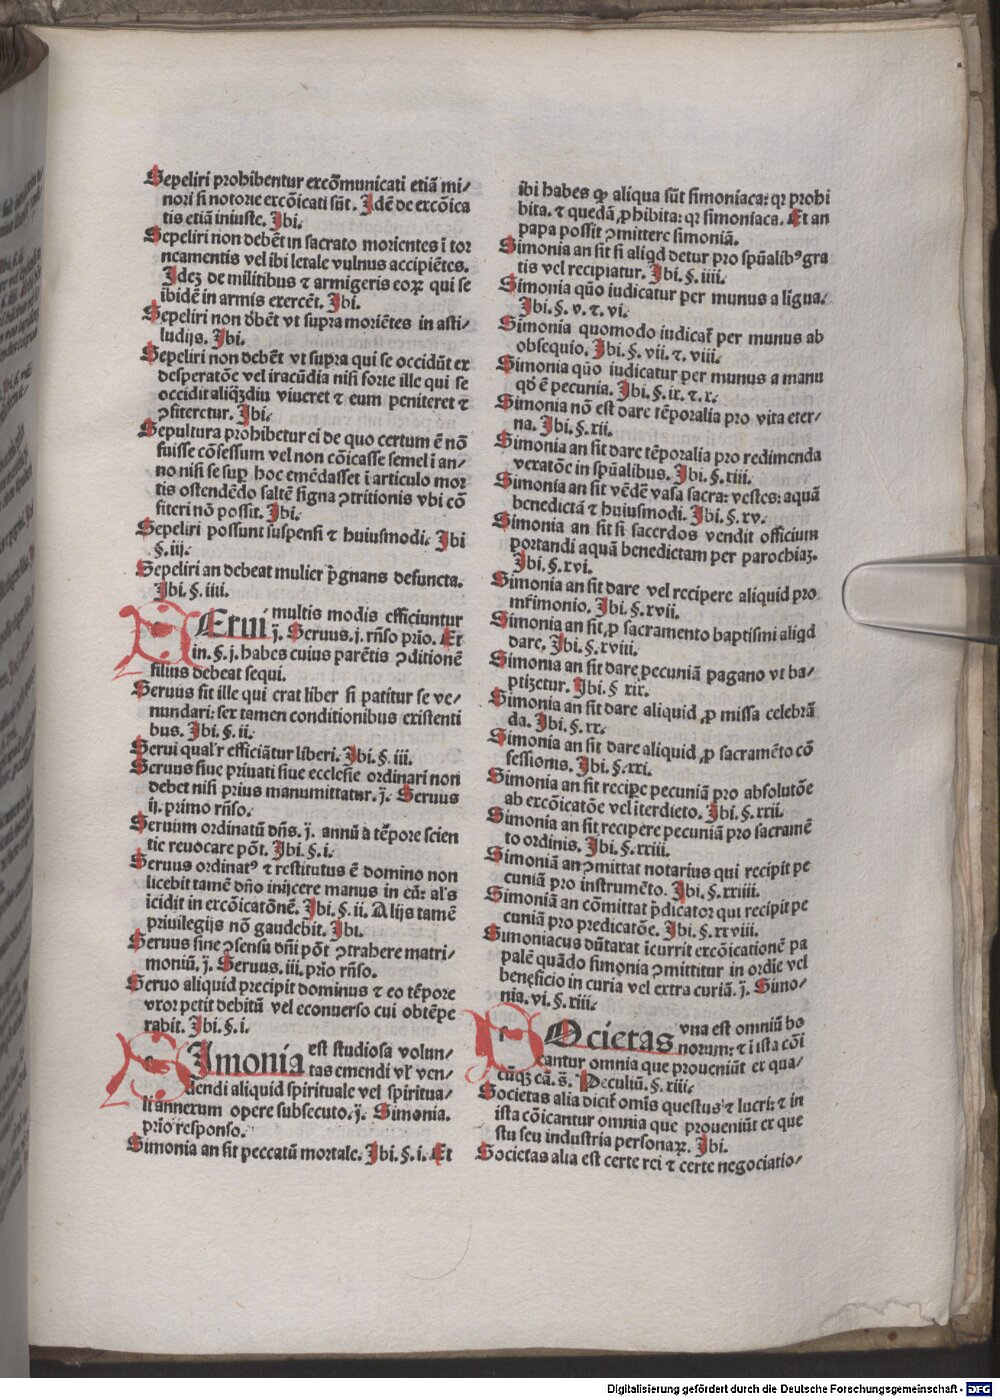 Sepeliri prohibentur excōmunicati etiā mi/
nori si notorie excōicati sūt. Idē de excōica
tis etiā iniuste. Ibi.
Sepeliri non debēt in sacrato morientes ī tor
neamentis vel ibi letale vulnus accipiētes.
Idcȝ de militibus ⁊ armigeris eoꝝ qui se
ibidē in armis exercēt. Ibi.
Sepeliri non d̄bēt vt supra moriētes in asti/
ludijs. Ibi.
Sepeliri non debēt vt supra qui se occidūt ex
desperatōe vel iracūdia nisi forte ille qui se
occidit aliqȝdiu viueret ⁊ eum peniteret ⁊
ꝯfiteretur. Ibi.
Sepultura prohibetur ei de quo certum ē nō
fuisse cōfessum vel non cōicasse semel ī an/
no nisi se suꝑ hoc emēdasset ī articulo mor
tis ostendēdo saltē signa ꝯtritionis vbi cō
fiteri nō possit. Ibi.
Sepeliri possunt suspensi ⁊ huiusmodi. Ibi
§. iij.
Sepeliri an debeat mulier p̄gnans defuncta.
Ibi. §. iiii.
SErui multis modis efficiuntur
j̄. Seruus. j. rn̄so prio. Et
in. §. j. habes cuius parētis ꝯditionē
filius debeat sequi.
Seruus sit ille qui erat liber si patitur se ve/
nundari: sex tamen conditionibus existenti
bus. Ibi. §. ii.
Serui qual'r efficiātur liberi. Ibi. §. iii.
Seruus siue priuati siue ecclesie ordinari non
debet nisi prius manumittatur. j̄. Seruus
ij. primo rn̄so.
Seruum ordinatū dn̄s. j̄. annū à tēpore scien
tie reuocare pōt. Ibi. §. i.
Seruus ordinatꝰ ⁊ restitutus ē domino non
licebit tamē dn̄o inijcere manus in eū: al's
icidit in excōicatōnē. Ibi. §. ii. Alijs tamē
priuilegijs nō gaudebit. Ibi.
Seruus sine ꝯsensū dn̄i pōt ꝯtrahere matri/
moniū. j̄. Seruus. iii. prīo rn̄so.
Seruo aliquid precipit dominus ⁊ eo tēpore
vxor petit debitū vel econuerso cui obtēpe
rabit. Ibi. §. i.
SImonia est studiosa volun/
tas emendi vl' ven/
dendi aliquid spirituale vel spiritua/
li annexum opere subsecuto. j̄. Simonia.
prio responso.
Simonia an sit peccatū mortale. Ibi. §. i. Et
ibi habes ꝙ aliqua sūt simoniaca: qꝛ prohi
bita. ⁊ quedā ꝓhibita: qꝛ simoniaca. Et an
papa possit ꝯmittere simoniā.
Simonia an sit si aliqd detur pro spūalibꝰ gra
tis vel recipiatur. Ibi. §. iiii.
Simonia qūo iudicatur per munus a līgua.
Ibi. §. v. ⁊. vi.
Simonia quomodo iudicat̄ per munus ab
obsequio. Ibi. §. vii. ⁊. viii.
Simonia qūo iudicatur per munus a manu
qd̄ ē pecunia. Ibi. §. ix. ⁊. x.
Simonia nō est dare tēporalia pro vita eter/
na. Ibi. §. xii.
Simonia an sit dare tēporalia pro redimenda
vexatōe in spūalibus. Ibi. §. xiii.
Simonia an sit vēdē vasa sacra: vestes: aquā
benedictā ⁊ huiusmodi. Ibi. §. xv.
Simonia an sit si sacerdos vendit officium
portandi aquā benedictam per parochiaȝ.
Ibi. §. xvi.
Simonia an sit dare vel recipere aliquid pro
mr̄imonio. Ibi. §. xvii.
Simonia an sit, ꝓ sacramento baptismi aliqd
dare. Ibi. §. xviii.
Simonia an sit dare pecuniā pagano vt ba/
ptizetur. Ibi. § xix.
Simonia an sit dare aliquid ꝓ missa celebrā
da. Ibi. §. xx.
Simonia an sit dare aliquid ꝓ sacramēto cō
fessionis. Ibi. §. xxi.
Simonia an sit recipere pecuniā pro absolutōe
ab excōicatōe vel īterdicto. Ibi. §. xxii.
Simonia an sit recipere pecuniā pro sacramē
to ordinis. Ibi. §. xxiii.
Simoniā an ꝯmittat notarius qui recipit pe
cuniā pro instrumēto. Ibi. §. xxiiii.
Simoniā an cōmittat p̄dicator qui recipit pe
cuniā pro predicatōe. Ibi. §. xxviii.
Simoniacus dūtaxat īcurrit excōicationē pa
palē quādo simonia ꝯmittitur in ordīe vel
beneficio in curia vel extra curiā. j̄. Simo/
nia. vi. §. xiii.
SOcietas vna est omniū bo
norum: ⁊ ī ista cōi
cantur omnia que proueniūt ex qua/
cūqȝ cā. s̄. Peculiū. §. xiii.
Societas alia dicit̄ omīs questus ⁊ lucri: ⁊ in
ista cōicantur omnia que proueniūt ex que
stu seu industria personaꝝ. Ibi.
Societas alia est certe rei ⁊ certe negociatio/
Digitalisierung gefördert durch die Deutsche Forschungsgemeinschaft - DFG